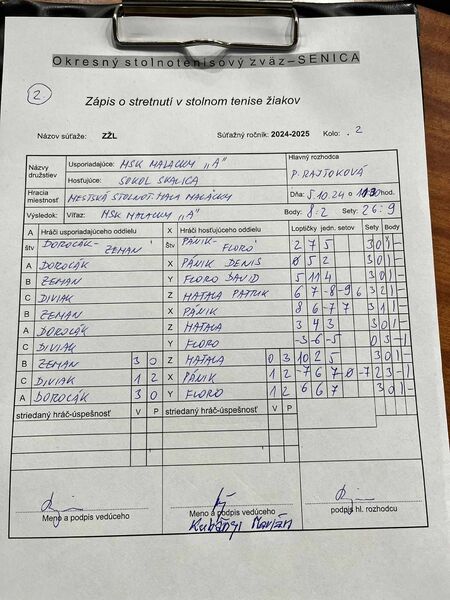 Okresný stolnotenisový zväz–SENICA
2
Zápis o stretnutí v stolnom tenise žiakov
Názov súťaže: ZŽL Súťažný ročník: 2024-2025 Kolo: . 2
Názvy družstiev Usporiadajúce: MSK MALACKY „A" Hlavný rozhodca
Hosťujúce: SOKOL SKALICA P. RAJTOKOVÁ
Hracia miestnosť MESTSKÁ STOLNOT. HALA MALACKY Dňa: 5.10.24 o hod.
Výsledok: Víťaz: MSK MALACKY „A" Body: 8:2 Sety: 26:9
A Hráči usporiadajúceho oddielu X Hráči hosťujúceho oddielu Loptičky jedn. setov Sety Body
štv DOROCÁK- ZEMAN Štv PÁNIK- FLORO 2 7 5 3 0 1 -
A DOROCÁK X PÁNIK DENIS 0 5 2 3 0 1 -
B ZEMAN Y FLORO DÁVID 5 11 4 3 0 1 -
C DIVIAK Z MATULA PATRIK 6 -7 8 -9 6 3 2 1 -
B ZEMAN X PÁNIK 8 6 -7 7 3 1 1 -
A DOROCÁK Z MATULA 3 4 3 3 0 1 -
C DIVIAK Y FLORO -3 -6 -5 0 3 - 1
B ZEMAN 3 0 Z MATULA 0 3 10 2 5 3 0 1 -
C DIVIAK 1 2 X PÁNIK 1 2 -7 6 7 -0 -7 2 3 - 1
A DOROCÁK 3 0 Y FLORO 1 2 6 6 7 3 0 1 -
striedaný hráč-úspešnosť V P striedaný hráč-úspešnosť V P
Meno a podpis vedúceho Meno a podpis vedúceho podpis hl. rozhodcu
Kubányi Marián